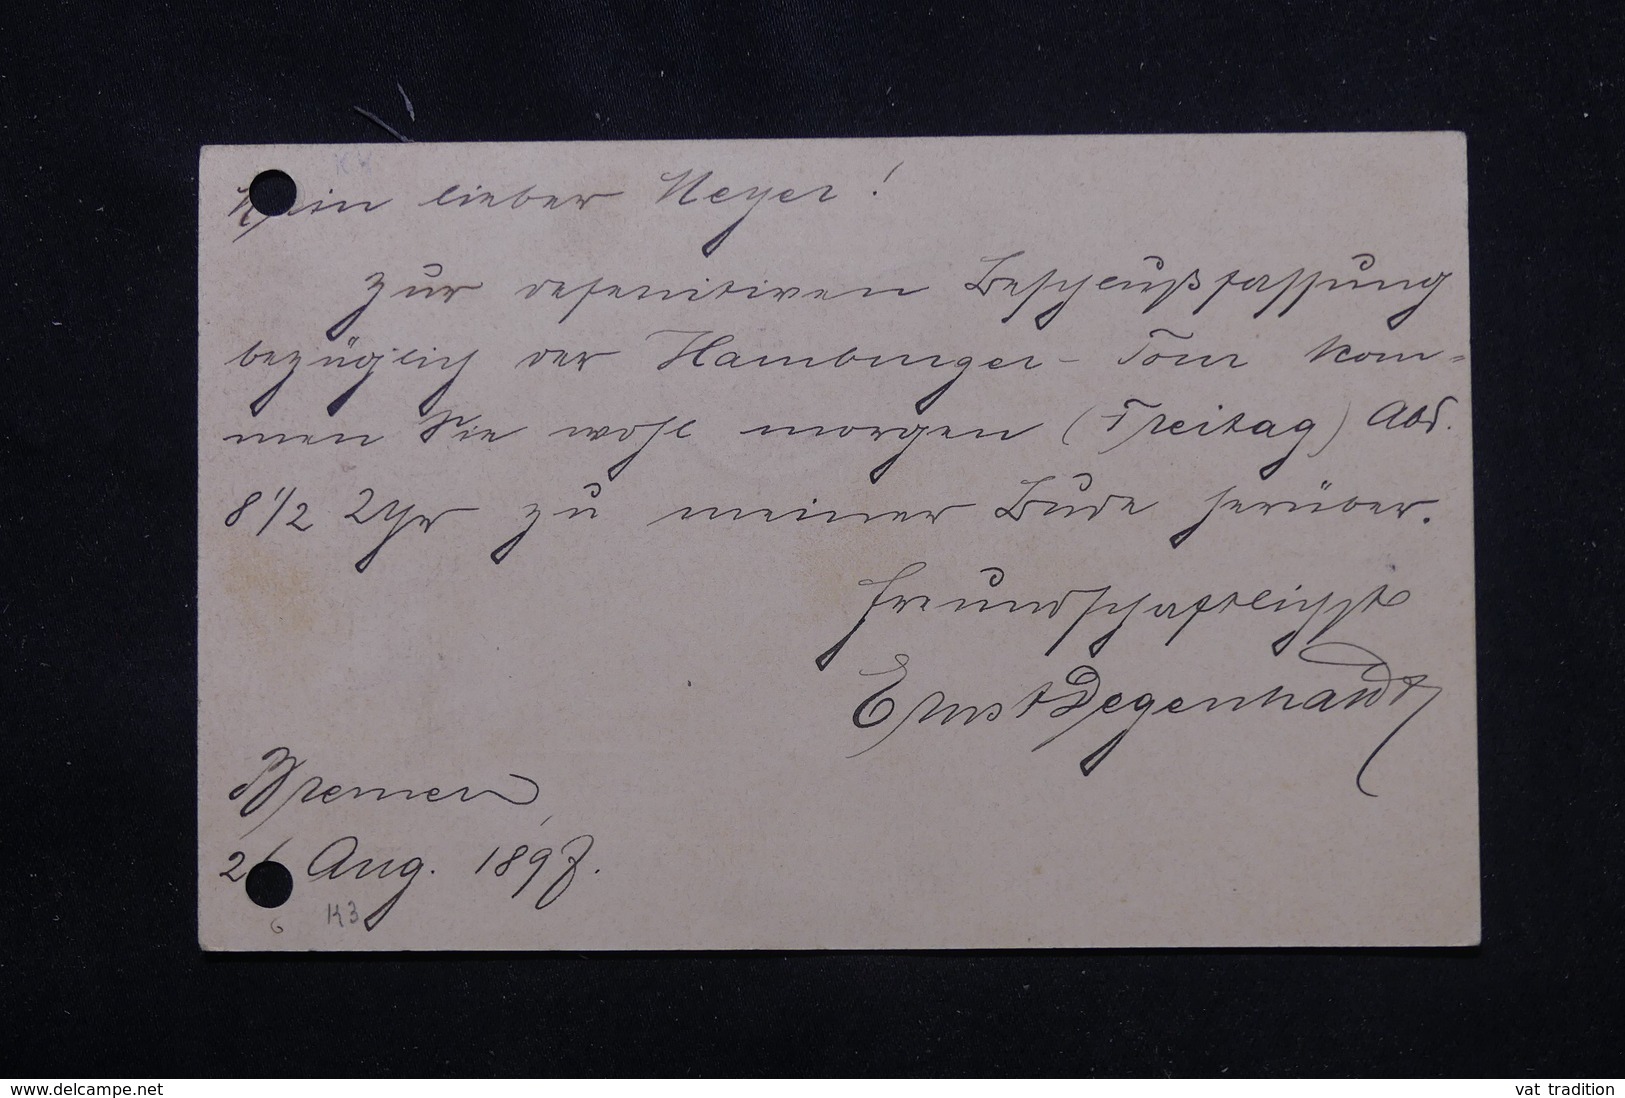 Mein lieber Meyer!
Zur defenitiven Beschlußfassung
bezüglich der Hamburger-Tour kom=
men Sie wohl morgen (Freitag) Abd.
8 1/2 Uhr zu meiner Bude herüber.
Freundschaftlichst
Ernst Degenhardt
Bremen,
26 Aug. 1897.
6 K3
www.delcampe.net
vat tradition